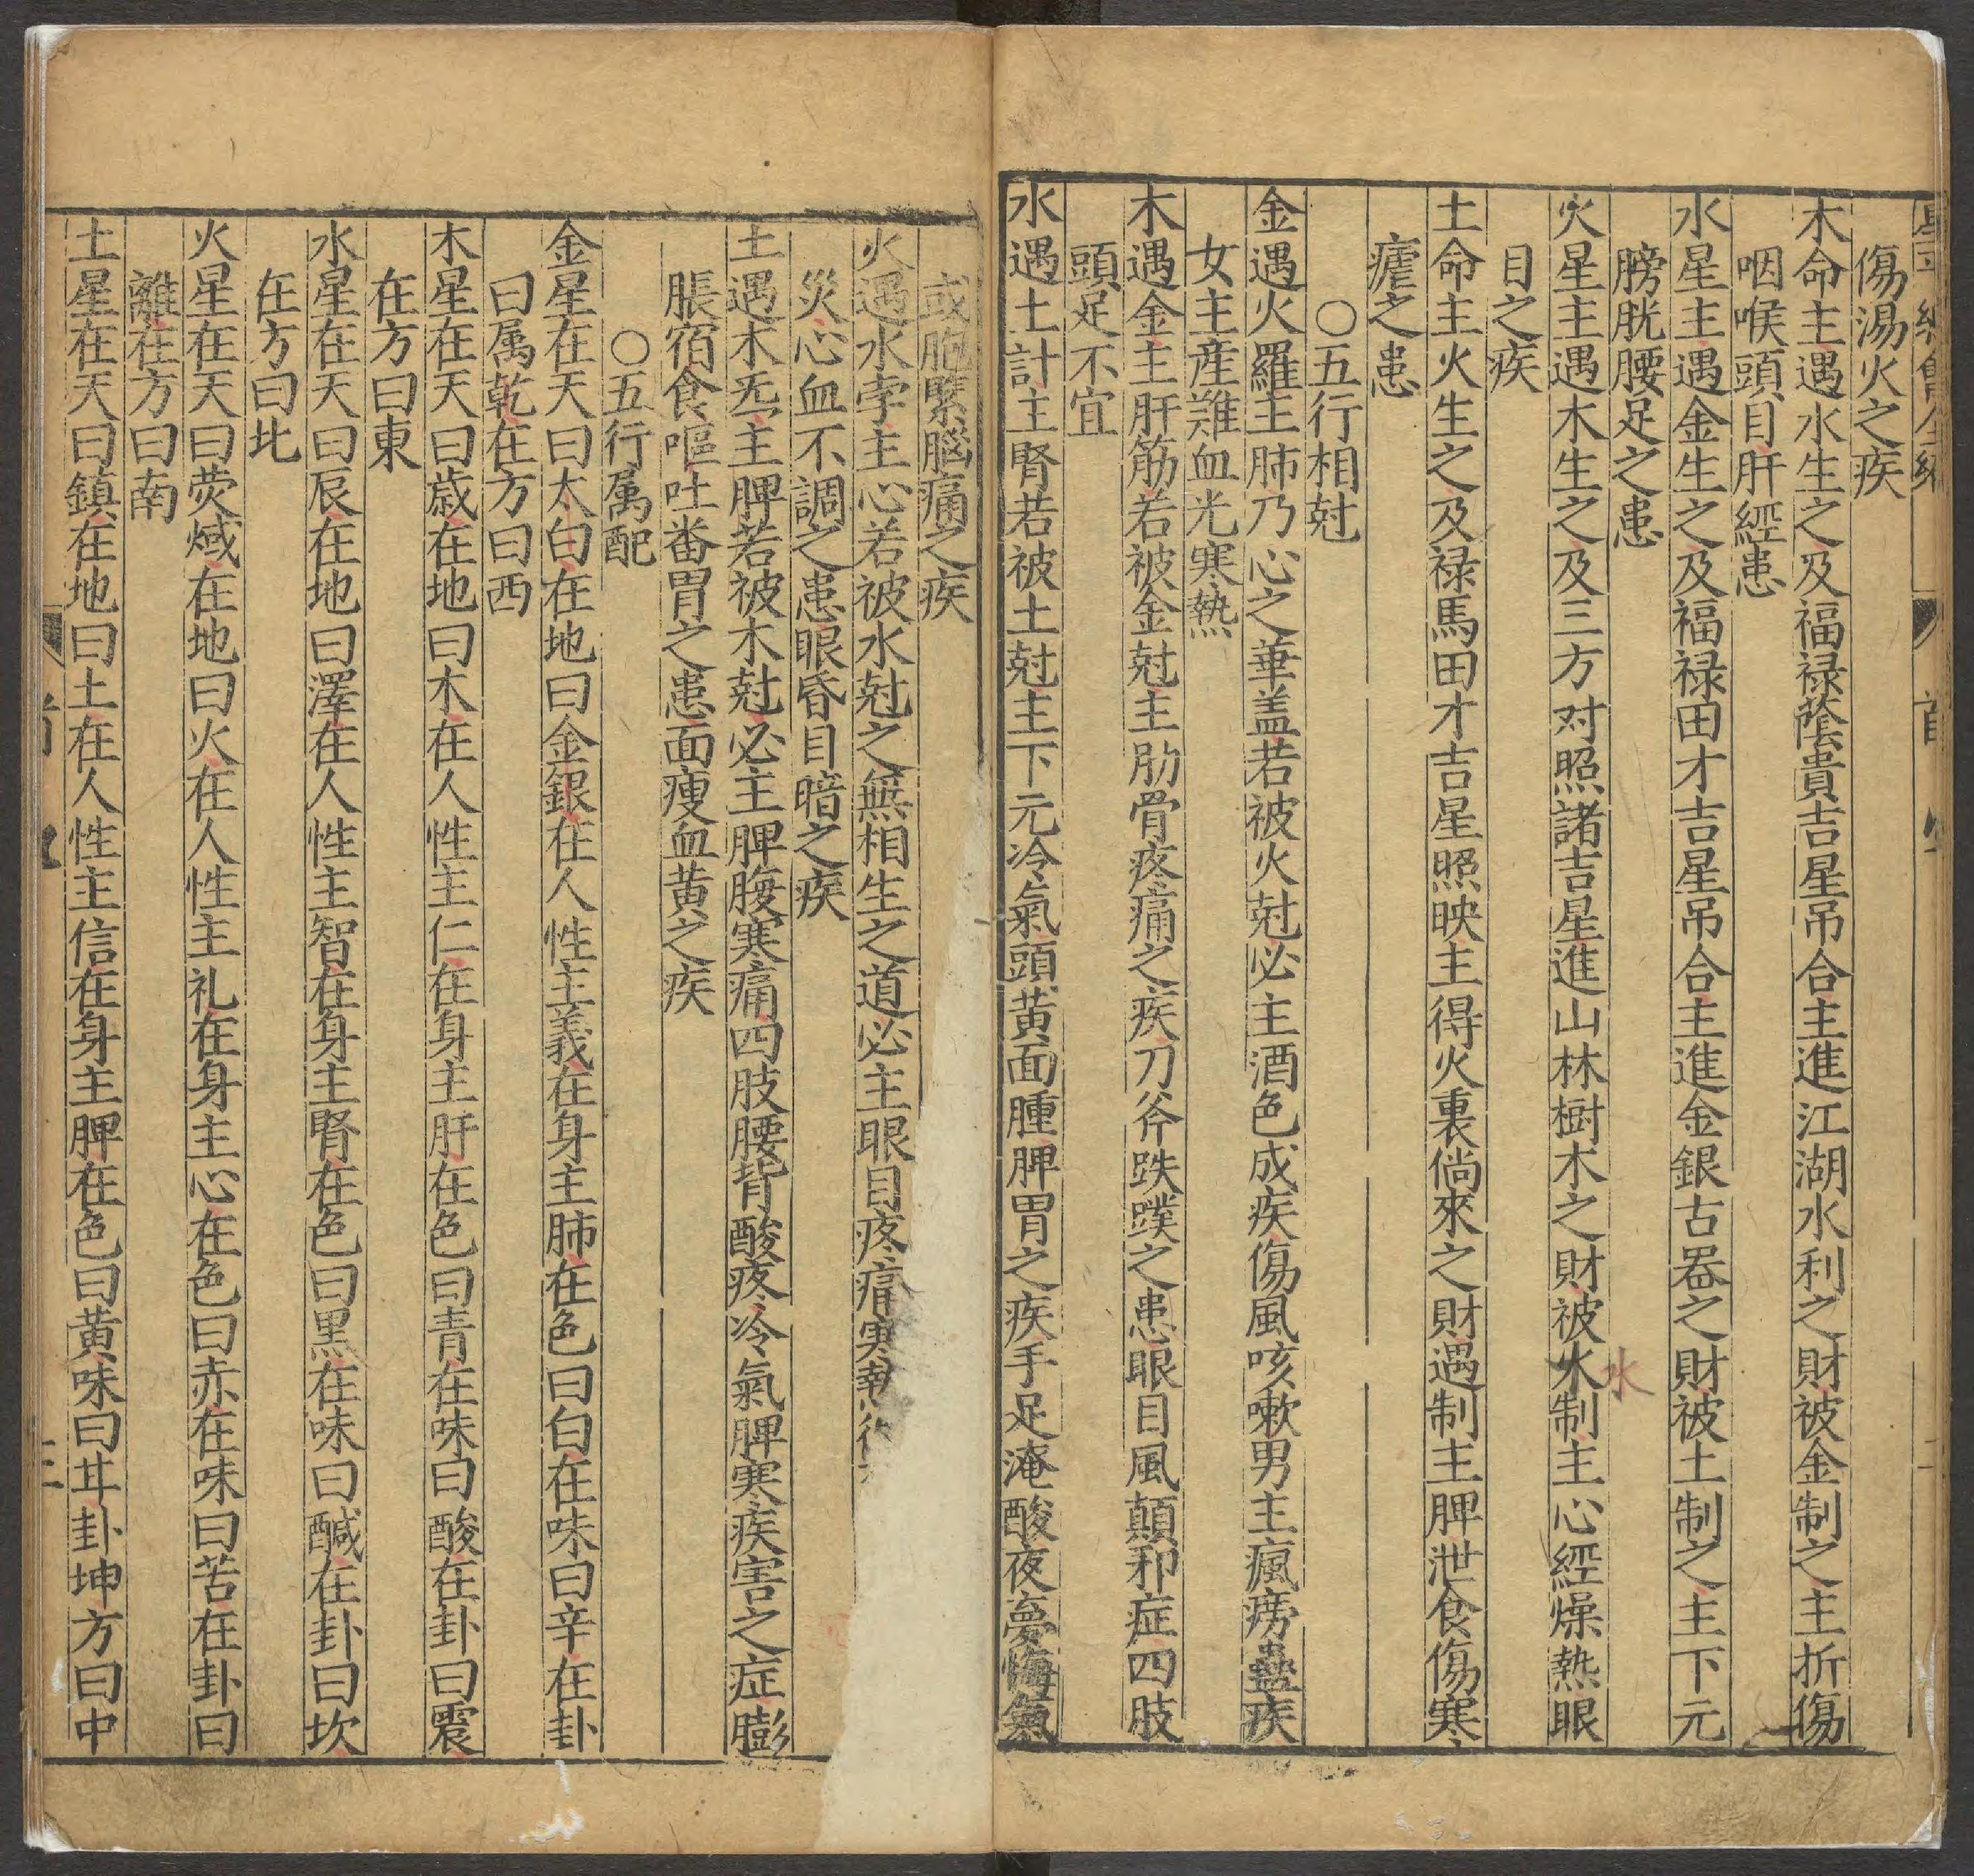 傷湯火之疾
木命主遇水生之及福禄蔭貴吉星吊合主進江湖水利之財被金制之主折傷
咽喉頭目肝經患
水星主遇金生之及福禄田才吉星吊合主進金銀古器之財被土制之主下元
膀胱腰足之患
火星主遇木生之及三方对照諸吉星進山林樹木之財被火制主心經燥熱眼
水
目之疾
土命主火生之及禄馬田才吉星照映主得火裏倘來之財遇制主脾泄食傷寒
瘧之患
○五行相尅
金遇火羅主肺乃心之華盖若被火尅必主酒色成疾傷風咳嗽男主瘋癆蠱疾
女主產難血光寒熱
木遇金主肝筋若被金尅主肋骨疼痛之疾刀斧跌蹼之患眼目風顛邪症四肢
頭足不宜
水遇土計主腎若被土尅主下元冷氣頭黄面腫脾胃之疾手足淹酸夜夢悔氣
或胞緊腦痛之疾
火遇水孛主心若被水尅之無相生之道必主眼目疼痛寒熱
災心血不調之患眼昏目暗之疾
土遇木炁主脾若被木尅必主脾腹寒痛四肢腰背酸疼冷氣脾寒疾害之症膨
脹宿食嘔吐番胃之患面瘦血黄之疾
○五行属配
金星在天曰太白在地曰金銀在人性主義在身主肺在色曰白在味曰辛在卦
曰属乾在方曰西
木星在天曰歳在地曰木在人性主仁在身主肝在色曰青在味曰酸在卦曰震
在方曰東
水星在天曰辰在地曰澤在人性主智在身主腎在色曰黑在味曰鹹在卦曰坎
在方曰北
火星在天曰荧惑在地曰火在人性主礼在身主心在色曰赤在味曰苦在卦曰
離在方曰南
土星在天曰鎮在地曰土在人性主信在身主脾在色曰黄味曰甘卦坤方曰中